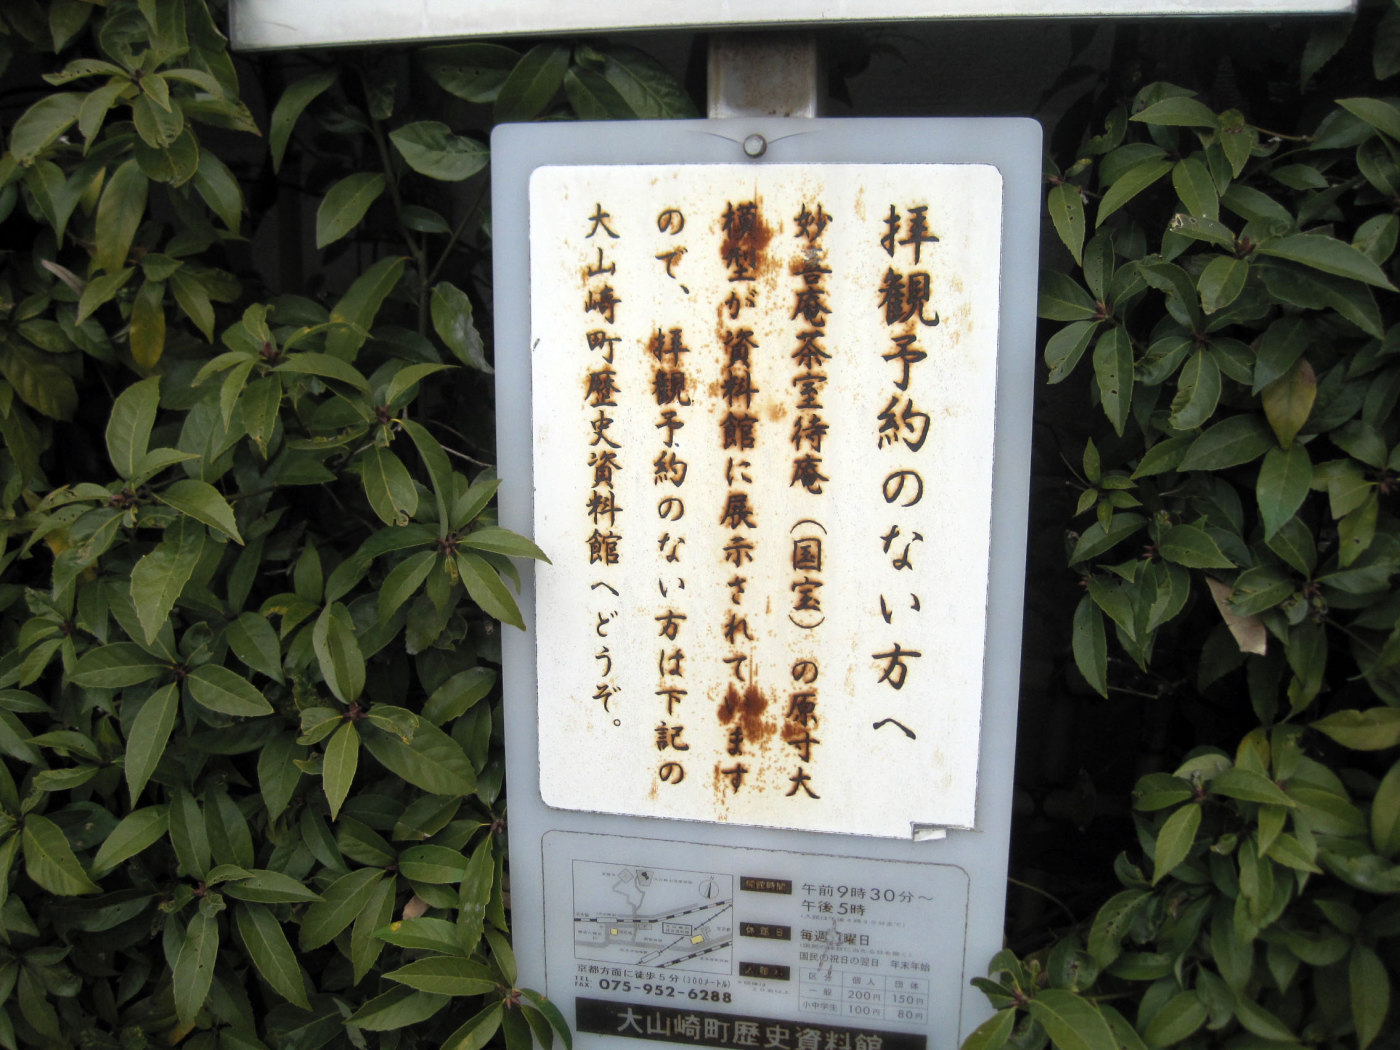 拝観予約のない方へ
妙喜庵茶室待庵（国宝）の原寸大
模型が資料館に展示されています
ので、拝観予約のない方は下記の
大山崎町歴史資料館へどうぞ。
京都方面に徒歩5分(300メートル)
TEL
FAX 075-952-6288
開館時間
午前9時30分～
午後5時
休館日
毎週 曜日
国民の祝日の翌日 年末年始
区分 個人 団体
一般 200円 150円
小中学生 100円 80円
大山崎町歴史資料館